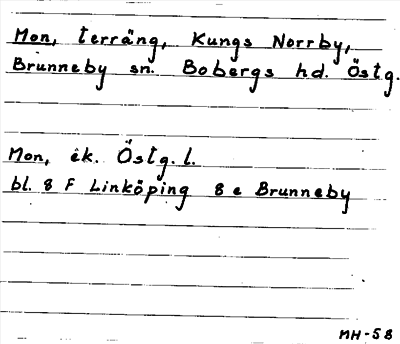 Mon, terräng, Kungs Norrby,
Brunneby sn. Bobergs hd. Östg.
Mon, ek. Östg. l.
bl. 8 F Linköping 8 e Brunneby
NH-58